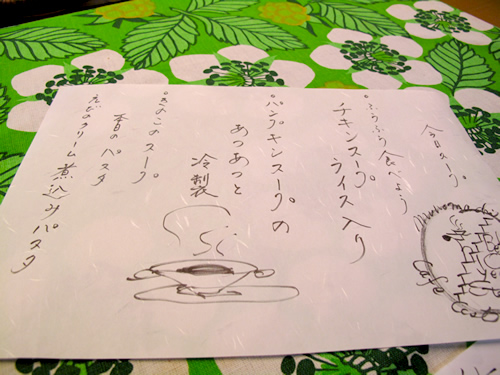 今日のスープ
・ふうふう食べよう
チキンスープ
ライス入り
・パンプキンスープの
あつあつと
冷製
・きのこのスープ
本日のパスタ
えびのクリーム煮込みパスタ
Cafe